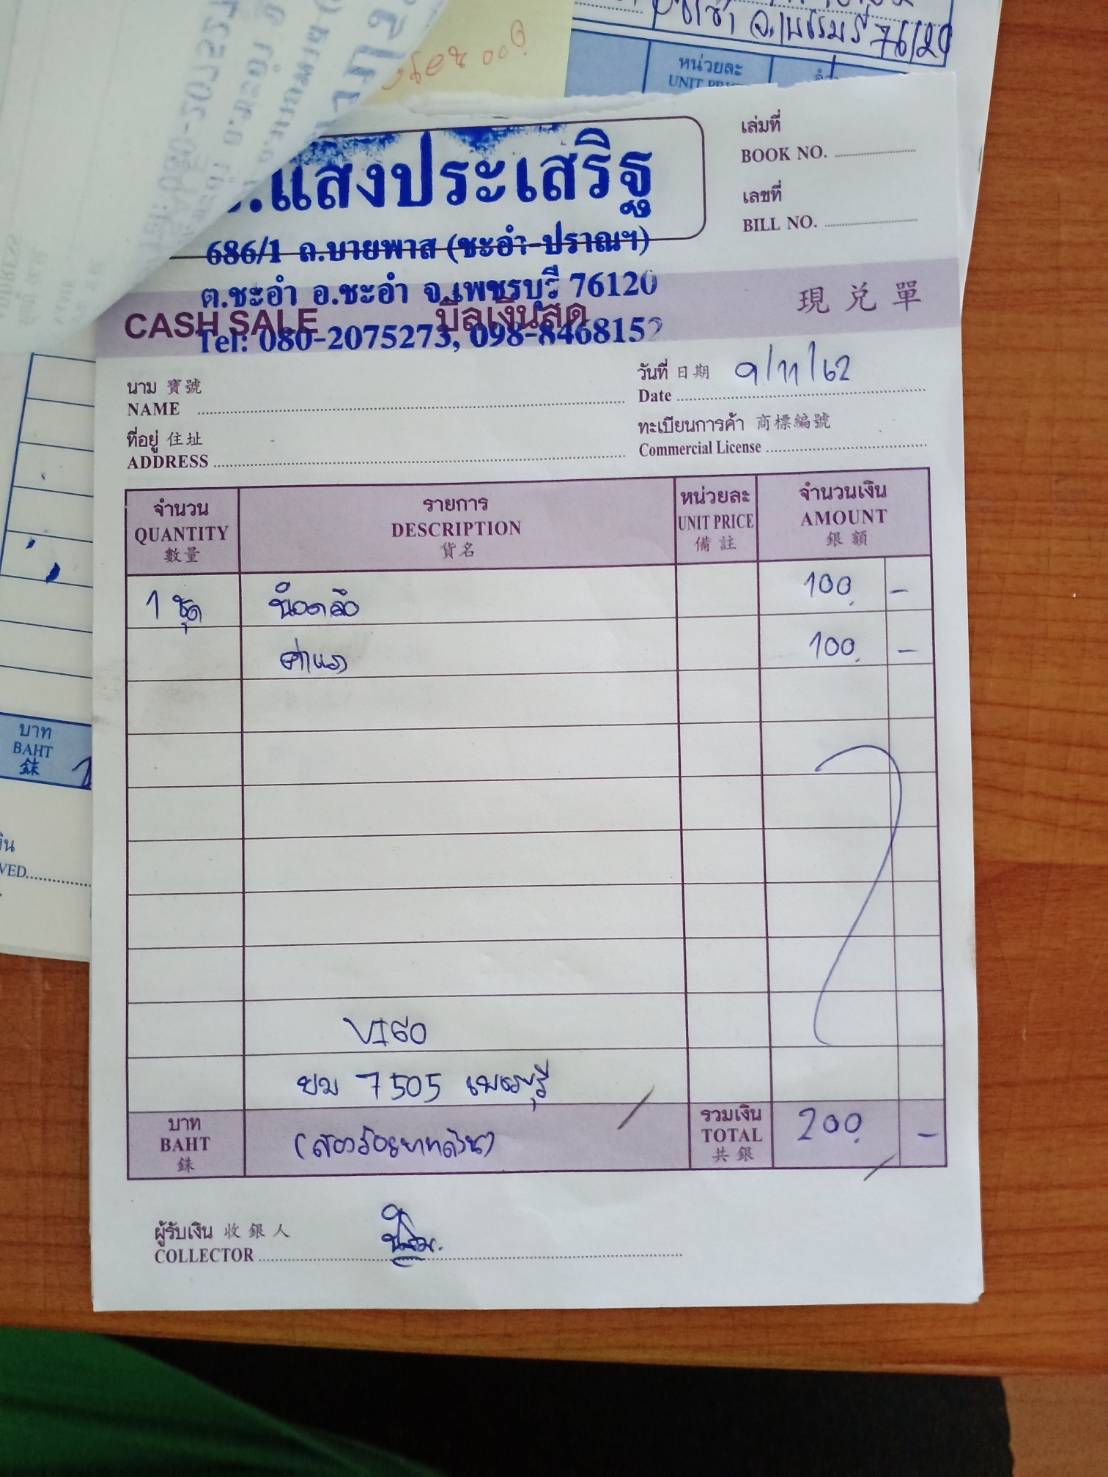 76120
หน่วยละ
UNIT PRICE
แสงประเสริฐ
686/1 ถ.บายพาส (ชะอำ-ปราณฯ)
ต.ชะอำ อ.ชะอำ จ.เพชรบุรี 76120
Tel: 080-2075273, 098-8468152
เล่มที่
BOOK NO.
เลขที่
BILL NO.
CASH SALE บิลเงินสด 現兌單
นาม 寶號
NAME
วันที่ 日期 9/11/62
Date
ที่อยู่ 住址
ADDRESS
ทะเบียนการค้า 商標編號
Commercial License
จำนวน รายการ หน่วยละ จำนวนเงิน
QUANTITY DESCRIPTION UNIT PRICE AMOUNT
數量 貨名 備註 銀額
1 ชุด น็อตล้อ 100 -
ค่าแรง 100 -
VIGO
ยม 7505 เพชรบุรี
บาท
BAHT
銖
(สองร้อยบาทถ้วน)
รวมเงิน
TOTAL
共銀
200 -
ผู้รับเงิน 收銀人
COLLECTOR
บาท
BAHT
銖